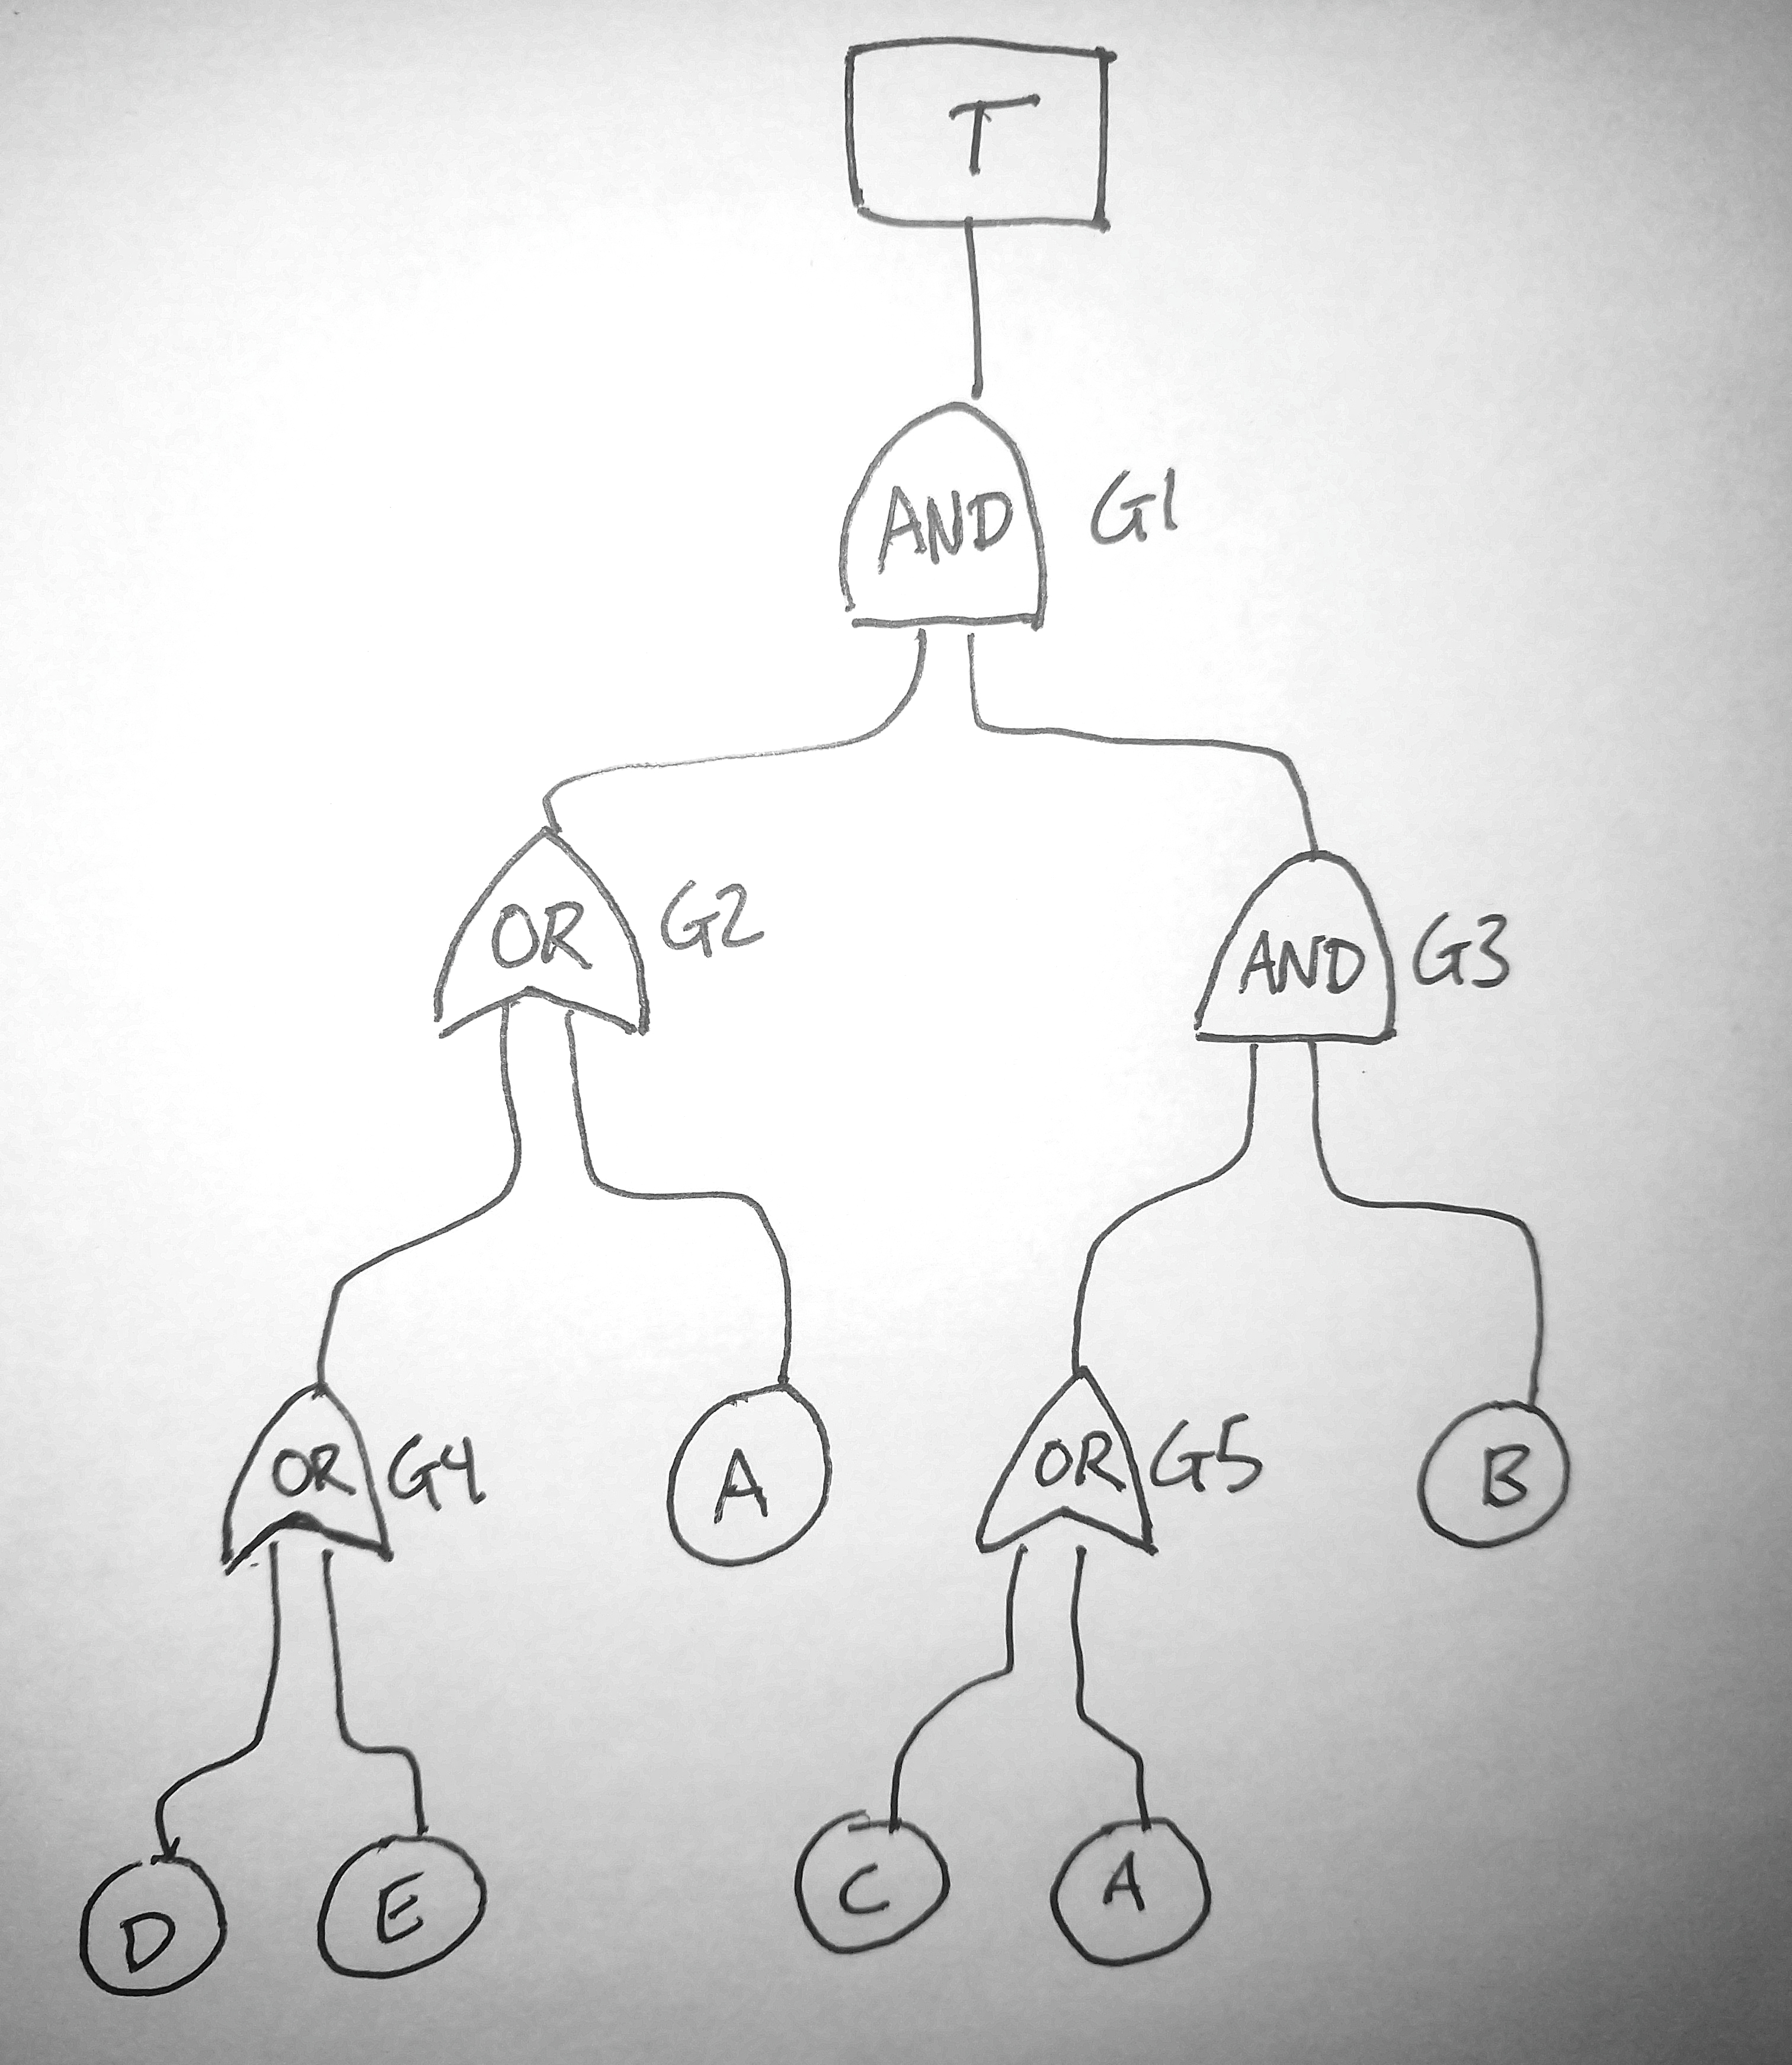 T
AND G1
OR G2
AND G3
OR G4
A
OR G5
B
D
E
C
A